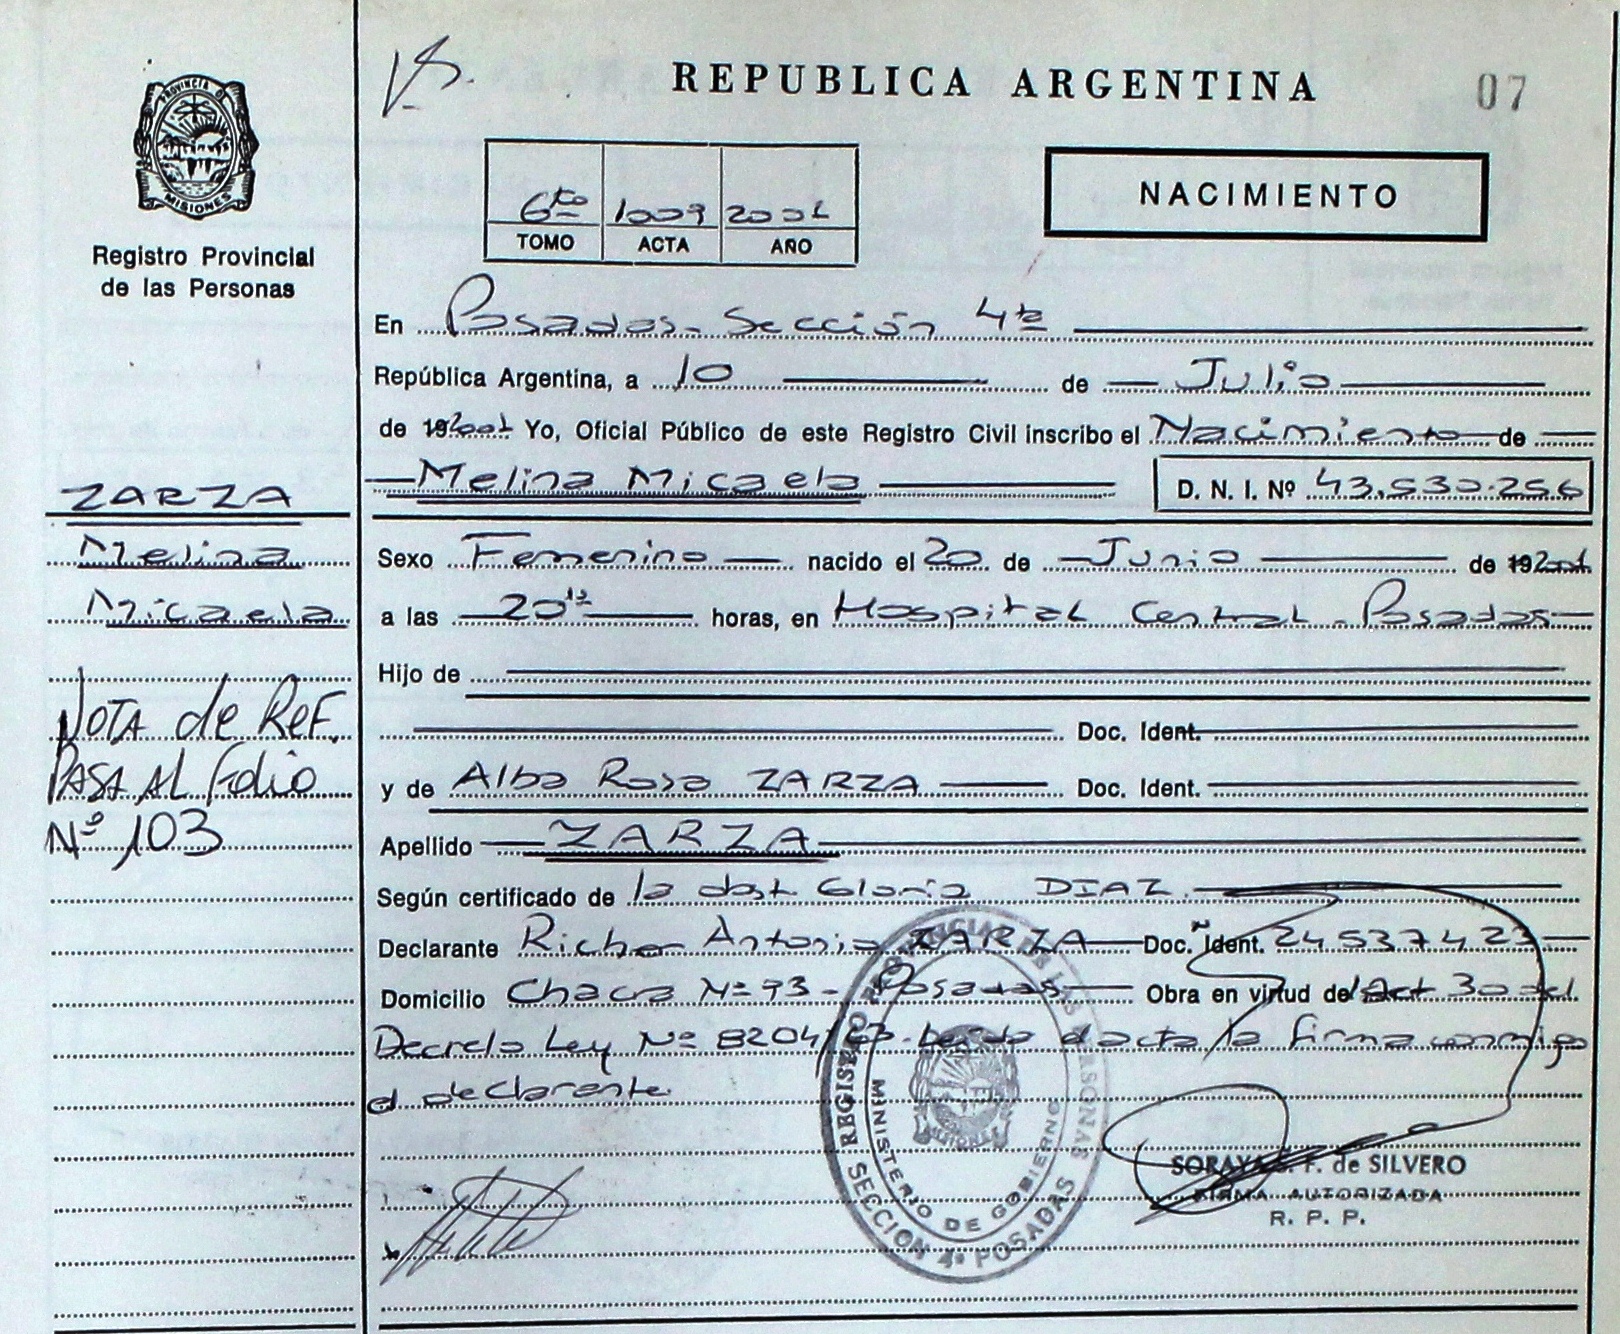 REPUBLICA ARGENTINA
07
PROVINCIA DE
MISIONES
Registro Provincial
de las Personas
6to 1009 2001
TOMO ACTA AÑO
NACIMIENTO
En Posadas - Sección 4ta
República Argentina, a 10 de Julio
de 192001 Yo, Oficial Público de este Registro Civil inscribo el Nacimiento de
Melina Micaela D. N. I. Nº 43.530.256
ZARZA
Melina
Micaela
Sexo Femenino nacido el 20 de Junio de 192001
a las 20 horas, en Hospital Central - Posadas
Hijo de
Doc. Ident.
y de Alba Rosa ZARZA Doc. Ident.
Apellido ZARZA
NOTA de REF.
PASA AL Folio
Nº 103
Según certificado de la obst. Gloria DIAZ.
Declarante Antonio ZARZA Doc. Ident. 24537423
Domicilio Chacra Nº 93 - Posadas Obra en virtud del Art 30 del
Decreto Ley Nº 8204/63. Leida el acta la firma conmigo
el declarante
REGISTRO PROVINCIAL DE LAS PERSONAS
MINISTERIO DE GOBIERNO
MISIONES
SECCION 4ª POSADAS
SORAYA F. de SILVERO
FIRMA AUTORIZADA
R. P. P.